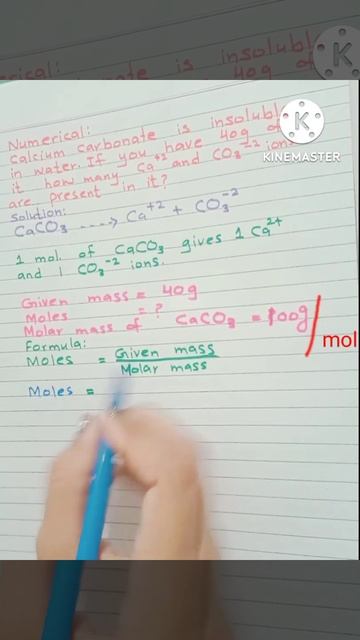 Numerical:
Calcium carbonate is insoluble
in water. If you have 40g of
it how many Ca⁺² and CO₃⁻² ions
are present in it?
Solution:
CaCO₃ ----> Ca⁺² + CO₃⁻²
1 mol. of CaCO₃ gives 1 Ca²⁺
and 1 CO₃⁻² ions.
Given mass = 40g
Moles = ?
Molar mass of CaCO₃ = 100g/mol
Formula:
Moles = Given mass
Molar mass
Moles =
KINEMASTER